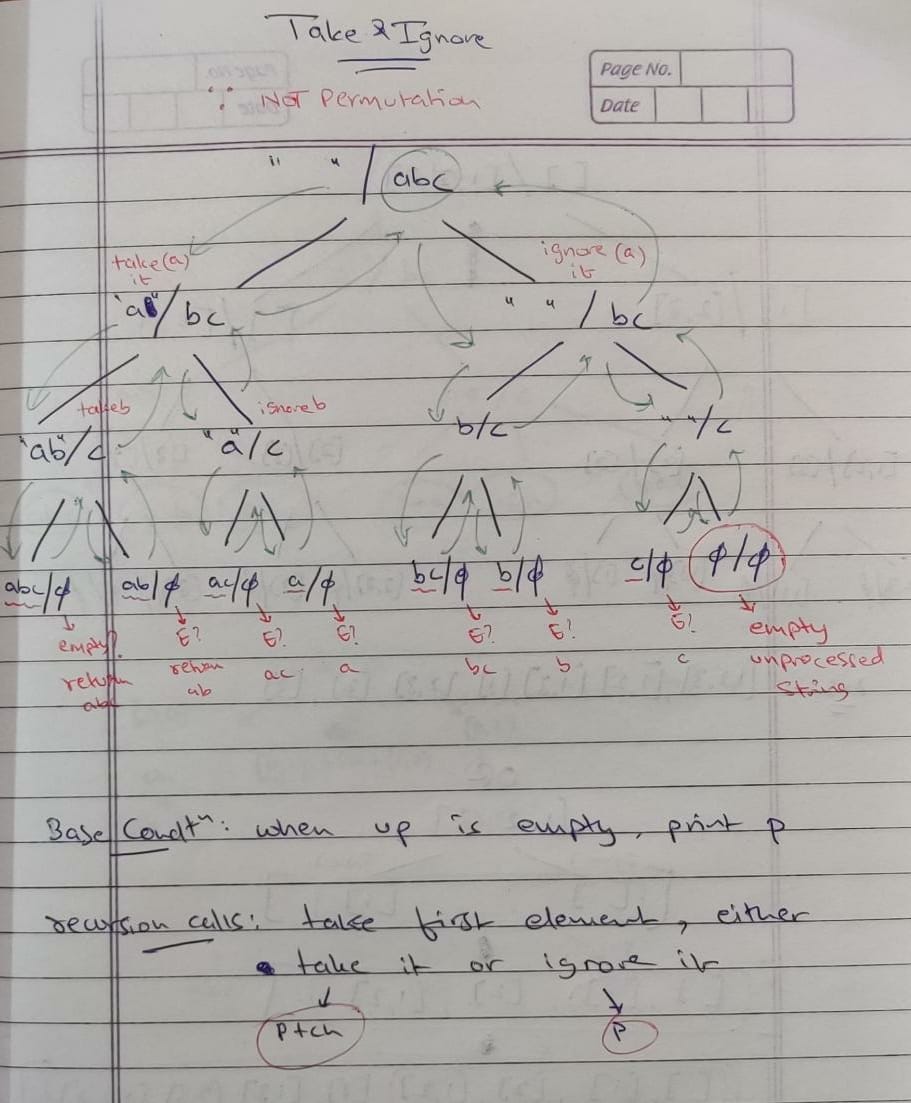 Take & Ignore
∵ NOT Permutation
Page No.
Date
" " / abc
take(a) it
ignore (a) it
"a" / bc
" " / bc
take b
ignore b
"ab"/c
"a"/c
b/c
" "/c
abc/ϕ ab/ϕ ac/ϕ a/ϕ bc/ϕ b/ϕ c/ϕ ϕ/ϕ
empty? E? E? E? E? E? E? empty
return abc return ab ac a bc b c unprocessed string
Base Condtⁿ: when up is empty, print p
recursion calls: take first element, either
take it or ignore it
P+ch P